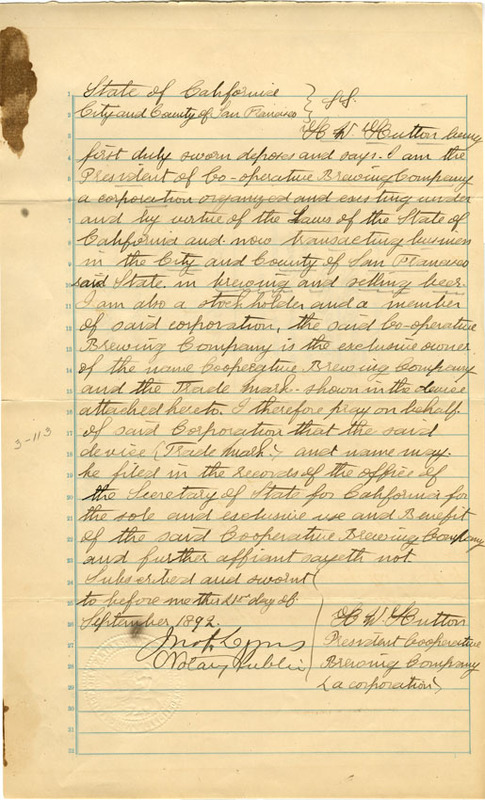 State of California
City and County of San Francisco } ss.
H W. Hutton being
first duly sworn deposes and says. I am the
President of Co-operative Brewing Company
a corporation organized and existing under
and by virtue of the Laws of the State of
California and now transacting business
in the City and County of San Francisco
said State in brewing and selling beer.
I am also a stockholder and a member
of said corporation, the said Co-operative
Brewing Company is the exclusive owner
of the name Cooperative Brewing Company
and the Trade Mark shown in the device
attached hereto. I therefore pray on behalf
of said Corporation that the said
device (Trade Mark) and name may
be filed in the records of the office of
the Secretary of State for California for
the sole and exclusive use and Benefit
of the said Cooperative Brewing Company
and further affiant sayeth not.
Subscribed and sworn
to before me this 21st day of
September 1892
Notary Public
H W. Hutton
President Cooperative
Brewing Company
(a corporation)
3-113